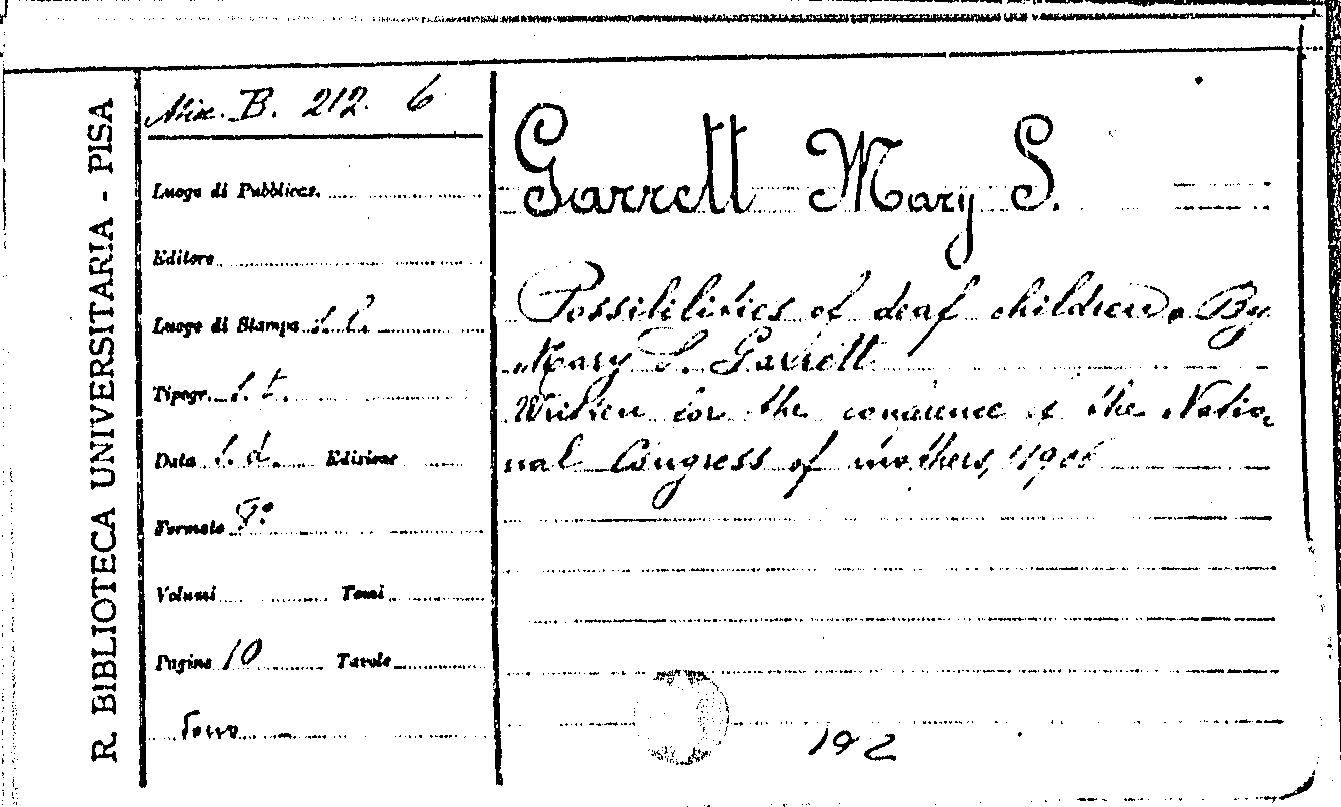 R. BIBLIOTECA UNIVERSITARIA - PISA
Misc. B. 212. 6
Luogo di Pubblicaz.
Editore
Luogo di Stampa s. l.
Tipogr. s. t.
Data s. d. Edizione
Formato 8º
Volumi Tomi
Pagine 10 Tavole
Garrett Mary S.
Possibilities of deaf children. By
Mary S. Garrett
Written for the conference of the Natio
nal Congress of mothers, 1906
192